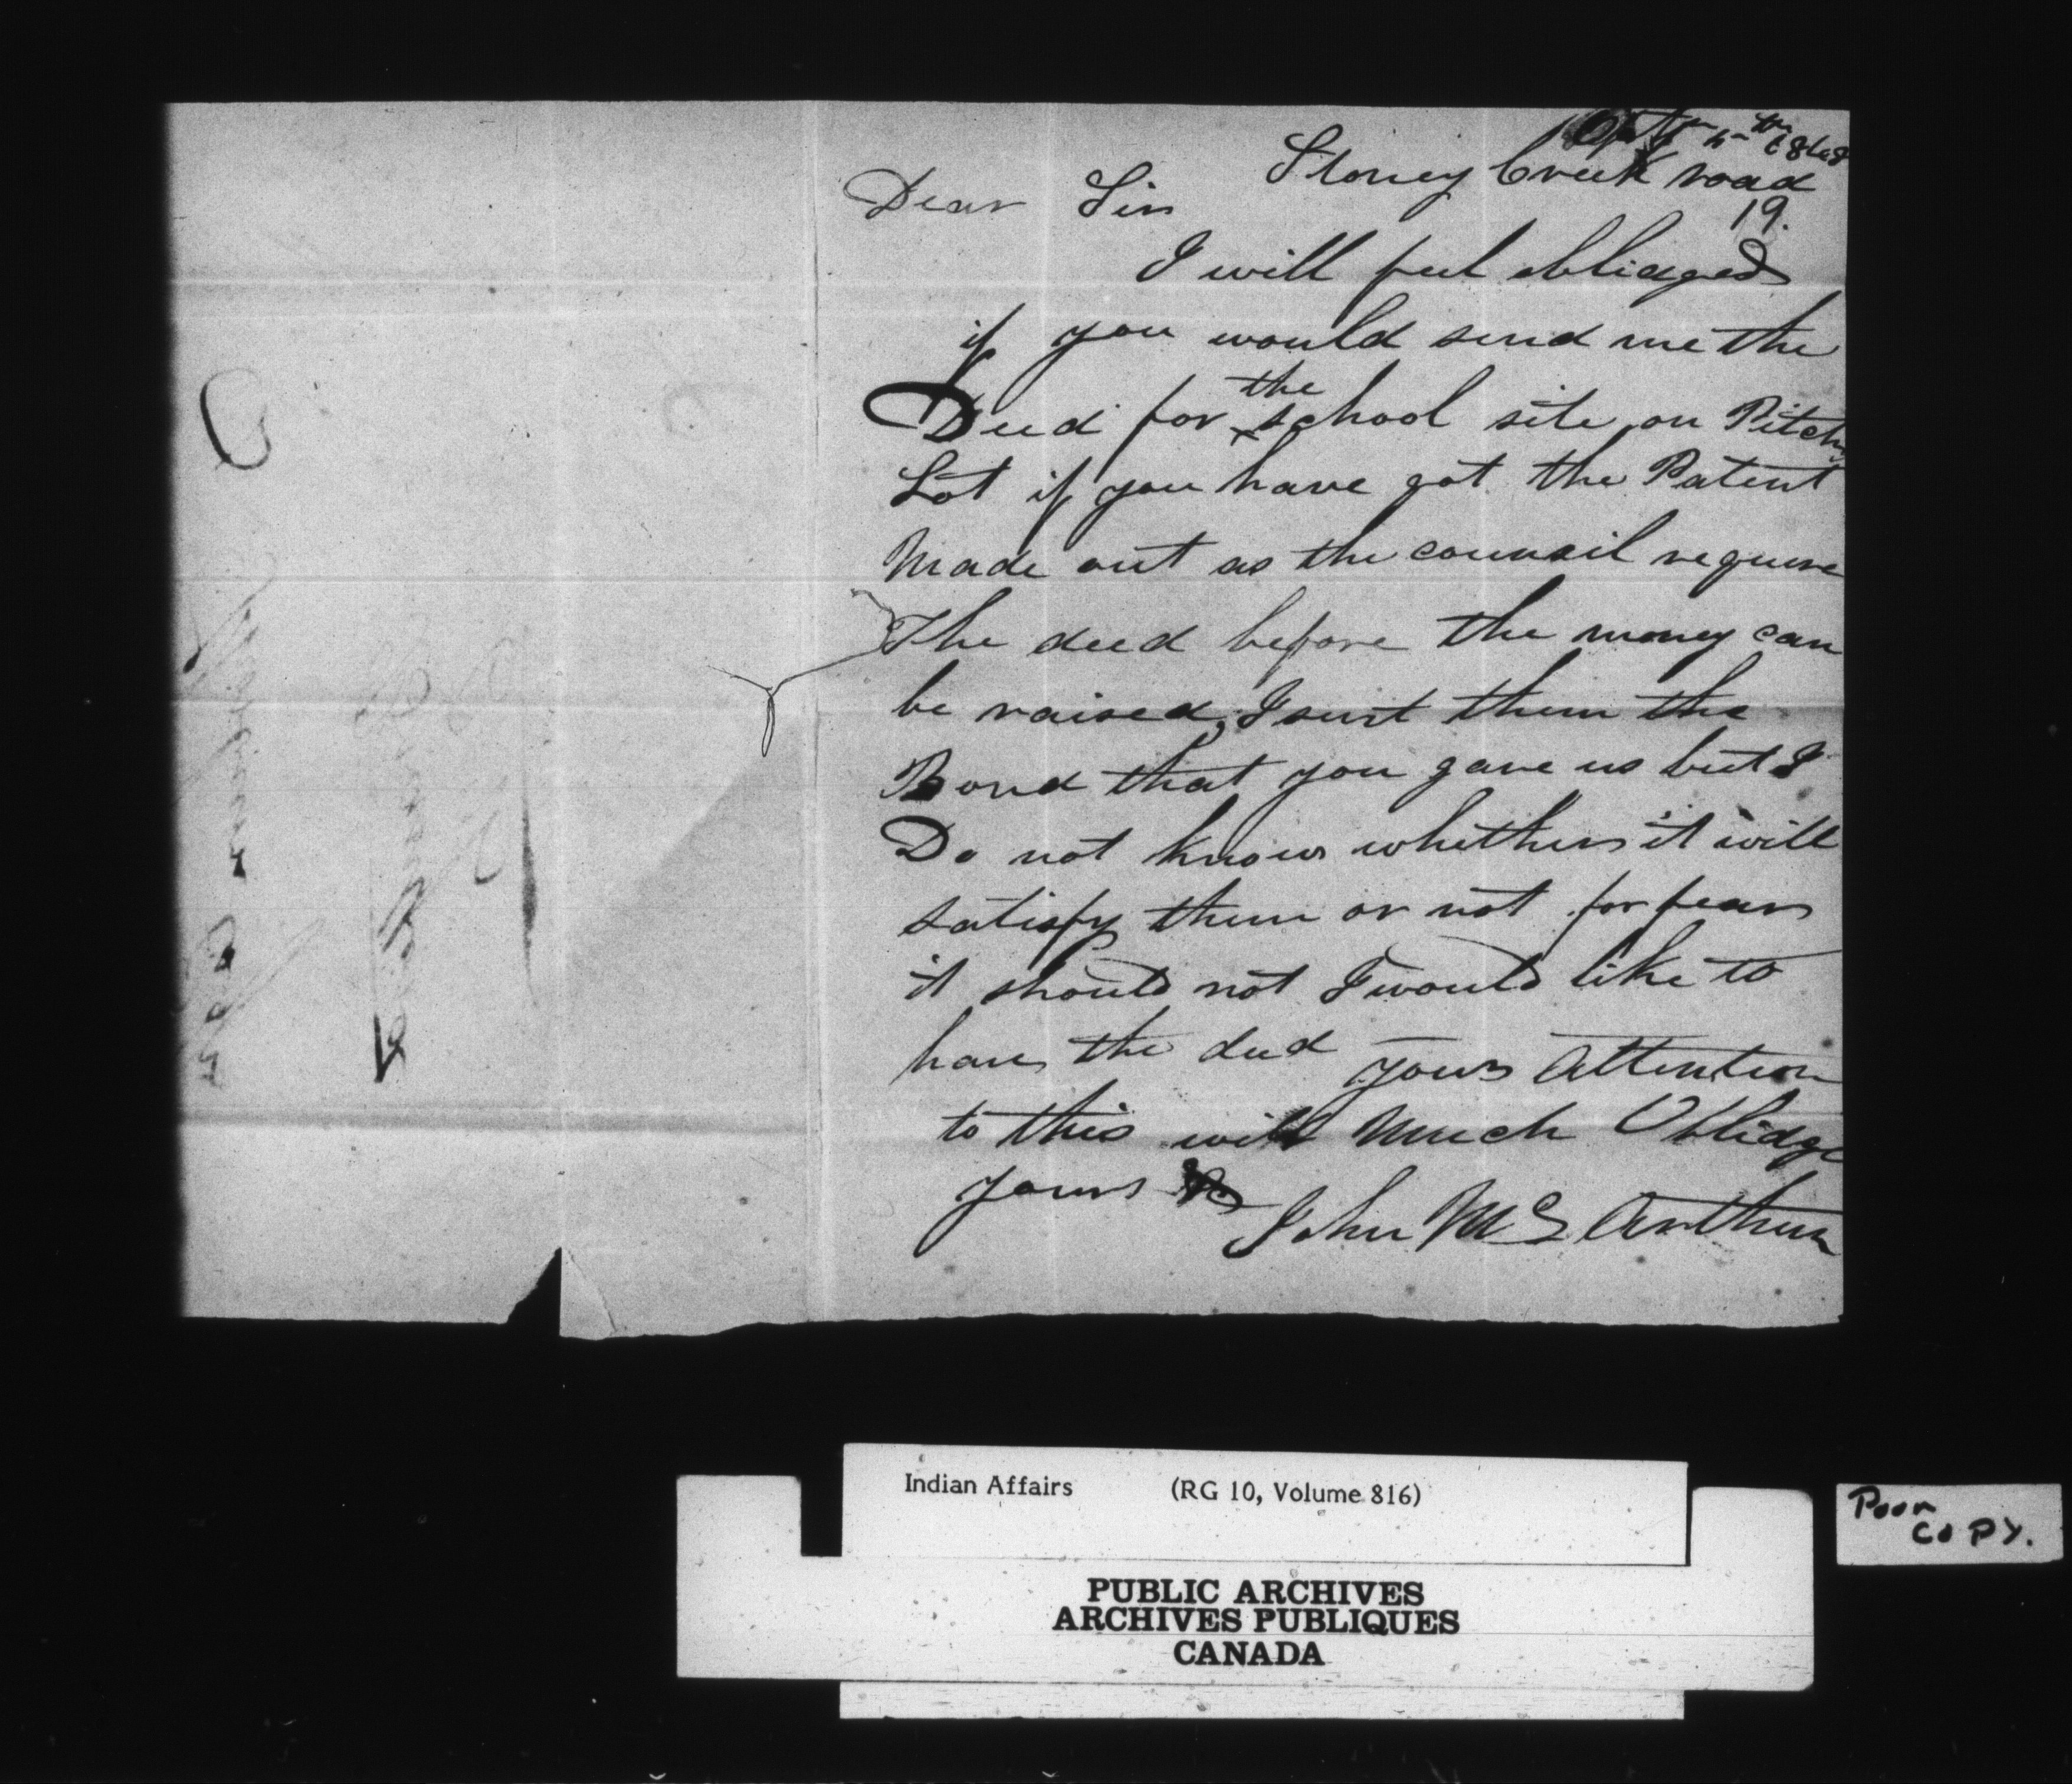 Stoney Creek road
19.
Dear Sir
I will feel oblidged
if you would send me the
Deed for the school site on Pitch
Lot if you have got the Patent
Made out as the council require
The deed before the money can
be raised, I sent them the
Bond that you gave us but I
Do not know whether it will
satisfy them or not for fear
it should not I would like to
have the deed your Attention
to this will Much Oblidge
yours
John Mc Arthur
Indian Affairs (RG 10, Volume 816)
PUBLIC ARCHIVES
ARCHIVES PUBLIQUES
CANADA
Poor
COPY.